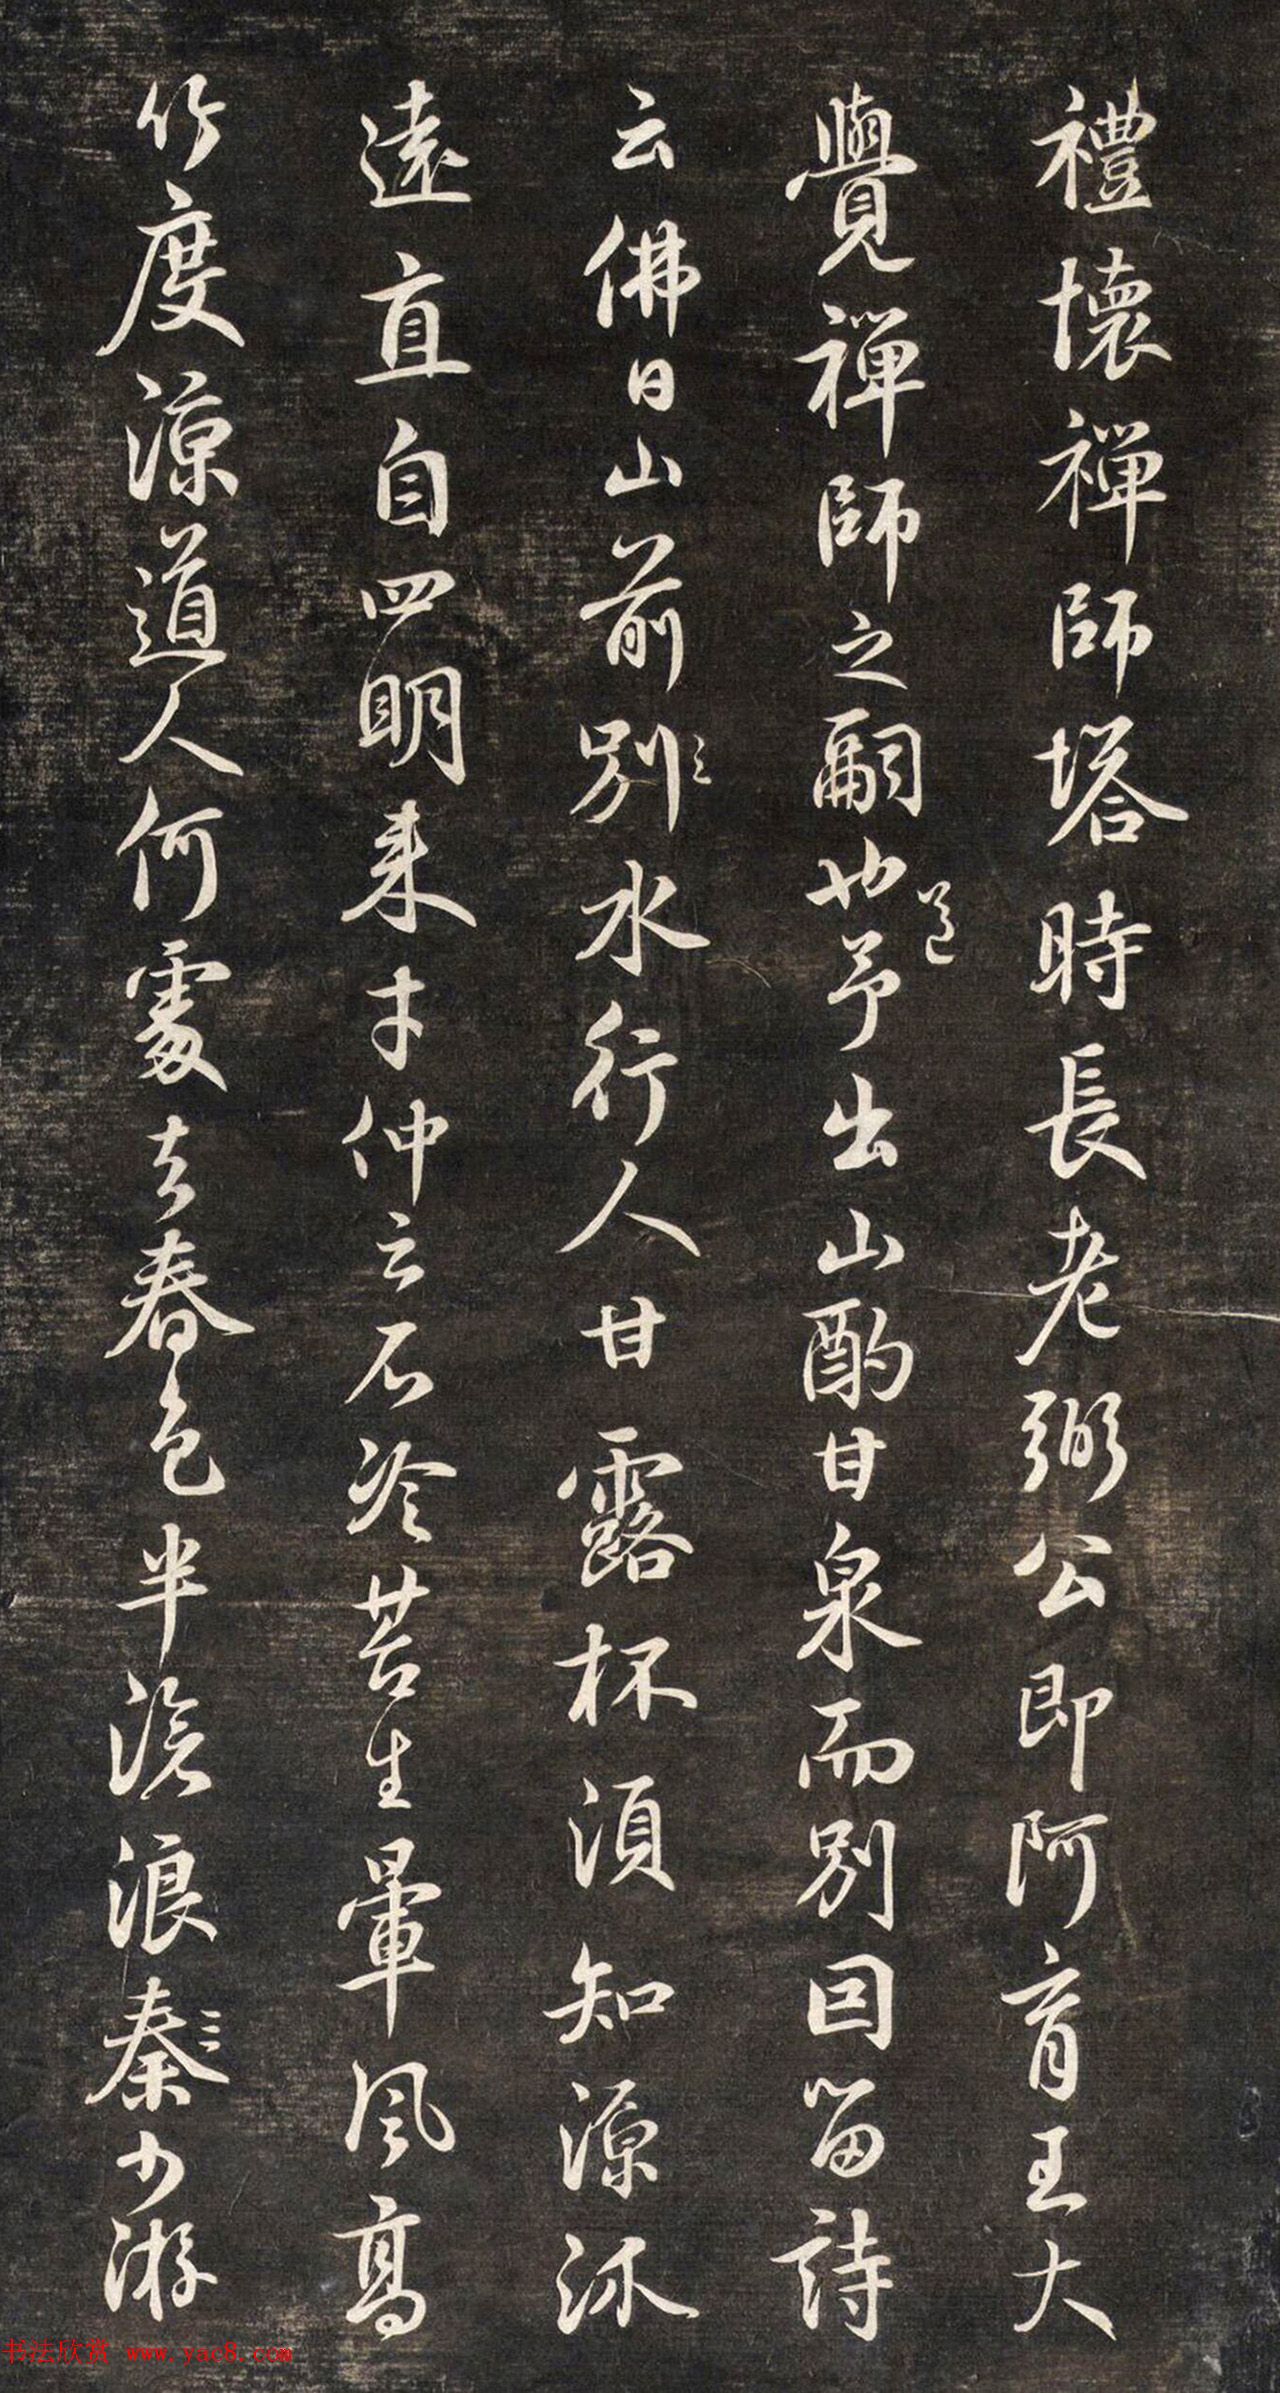 禮懷禪師塔時長老弼公即阿育王大
覺禪師之嗣也送予出山酌甘泉而別因留詩
云佛日山前別水行人甘露杯須知源派
遠直自四明来才仲云石冷苔生暈風高
竹度涼道人何處去春色半滄浪秦少游
书法欣赏 www.yac8.com